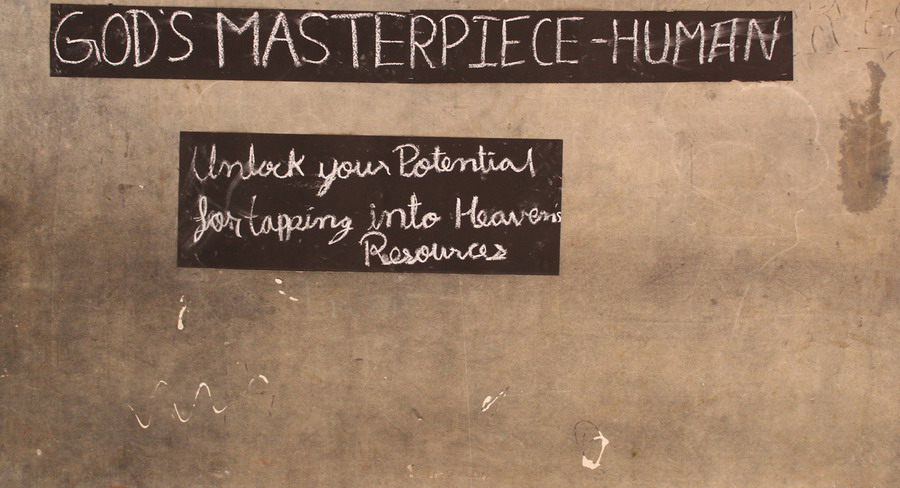 GOD'S MASTERPIECE-HUMAN
Unlock your Potential
for tapping into Heaven's
Resources